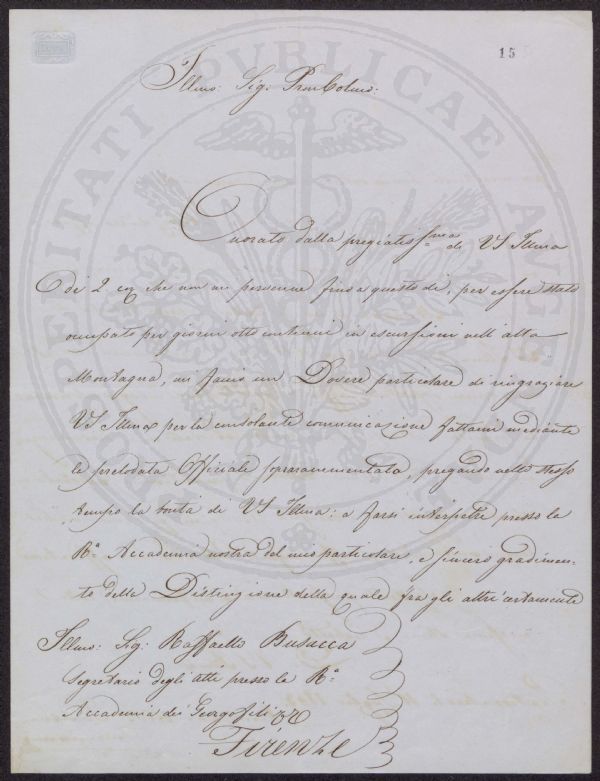 15
Illmo: Sig: Pron Colmo:
Onorato dalla pregiatissma di VS Illma
di 2 cq che non mi pervenne fino a questo dì, per essere stato
occupato per giorni otto continui in escursioni nell'alta
Montagna, mi faccio un Dovere particolare di ringraziare
VS Illma per la consolante comunicazione fattami mediante
la prelodata Officiale sprarammentata, pregando nello stesso
tempo la bontà di VS Illma: a farsi interpetre presso la
Ra Accademia nostra del mio particolare, e sincero gradimen-
to della Distinzione della quale fra gli altri certamente
Illmo: Sig: Raffaello Busacca
Segretario degli atti presso la Ra
Accademia dei Georgofili
Firenze
PROSPERITATI PVBLICAE AVGENDAE